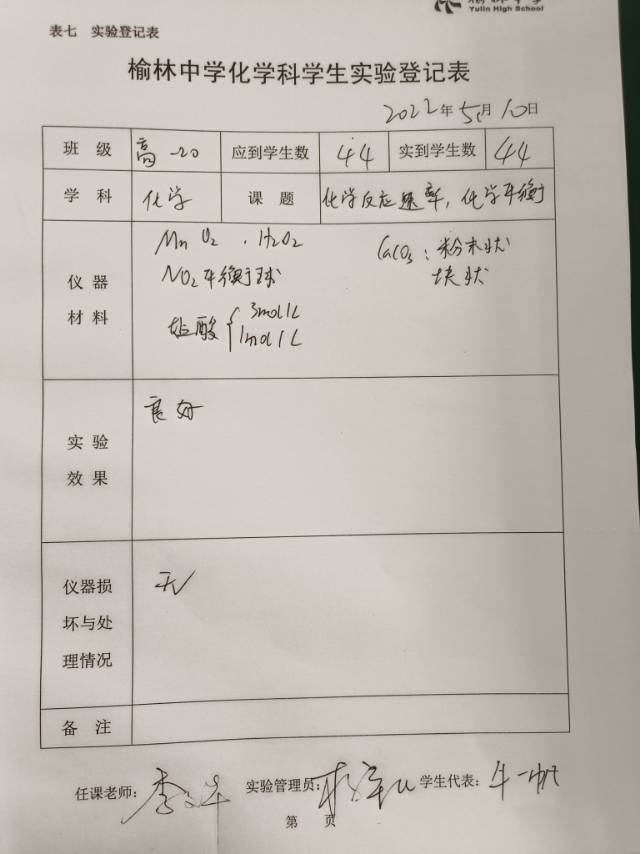 Yulin High School
表七 实验登记表
榆林中学化学科学生实验登记表
2022年5月10日
班级 高一20 应到学生数 44 实到学生数 44
学科 化学 课题 化学反应速率,化学平衡
仪器材料
MnO2、H2O2 CaCO3:粉末状
NO2平衡球 块状
盐酸{3mol/L
1mol/L
实验效果
良好
仪器损坏与处理情况
无
备注
任课老师: 实验管理员: 学生代表:牛一帆
第 页